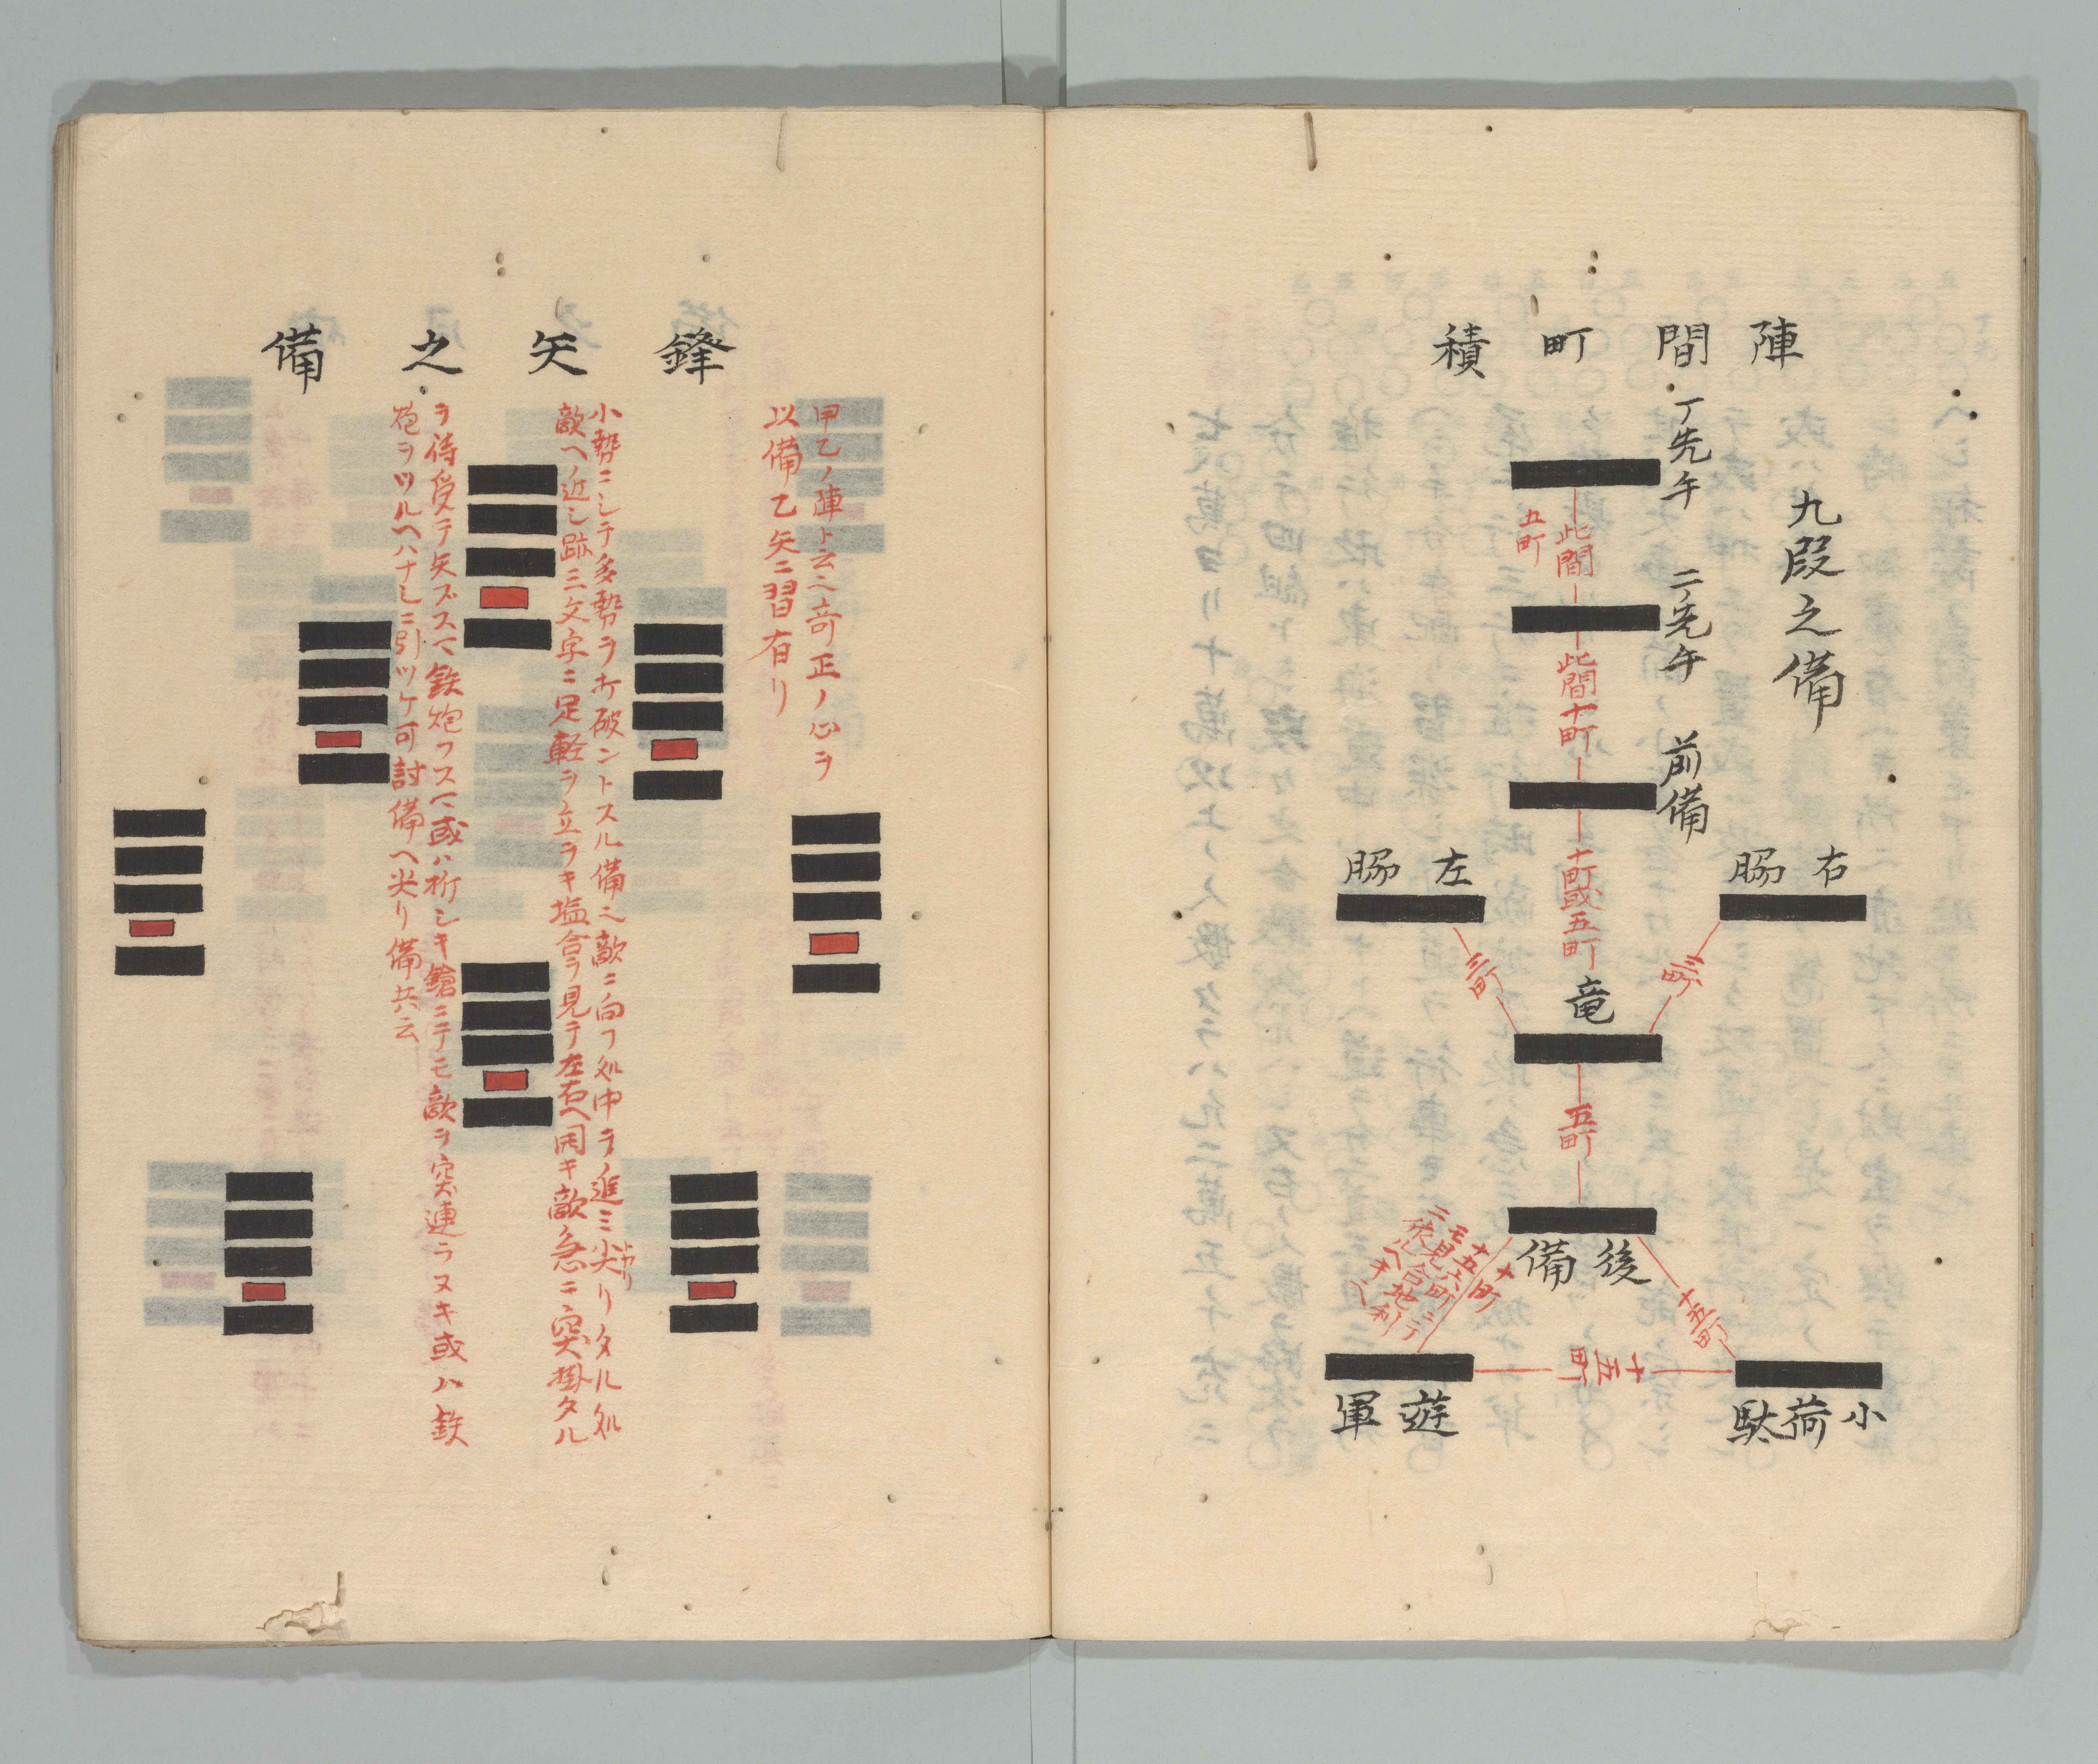 陣間町積
九段之備
一先午
二先午
前備
右脇
左脇
竜
後備
小荷駄
遊軍
此間
五町
此間十町
十町或五町
三町
三町
五町
十五町
十五町
十町
十五六町ニテ
モ見合地利
ニ依ルヘキ也
鋒矢之備
甲乙ノ陣ト云ハ奇正ノ心ヲ
以備乙矢ニ習有リ
小勢ニシテ多勢ヲ打破ントスル備ニ敵ニ向フ処中ヲ進ミ尖リタル処
トカリ
敵ヘノ近シ跡三文字ニ足軽ヲ立ラキ塩合ヲ見テ左右ヘ開キ敵急ニ突掛タル
ヲ待受テ矢ブスマ鉄炮フスマ或ハ折シキ鎗ニテモ敵ヲ突連ラヌキ或ハ鉄
炮ヲツルヘハナシニ引ツケ可討備ヘ尖リ備共云